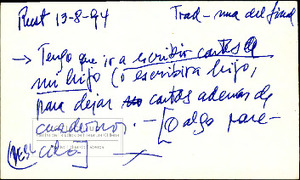 Rust 13-8-94
Trad-una del final
→ Tengo que ir a escribir cartas a
mi hijo (o escribir a hijo,
para dejar cartas además de
cuaderno. — [O algo pare-
cido]